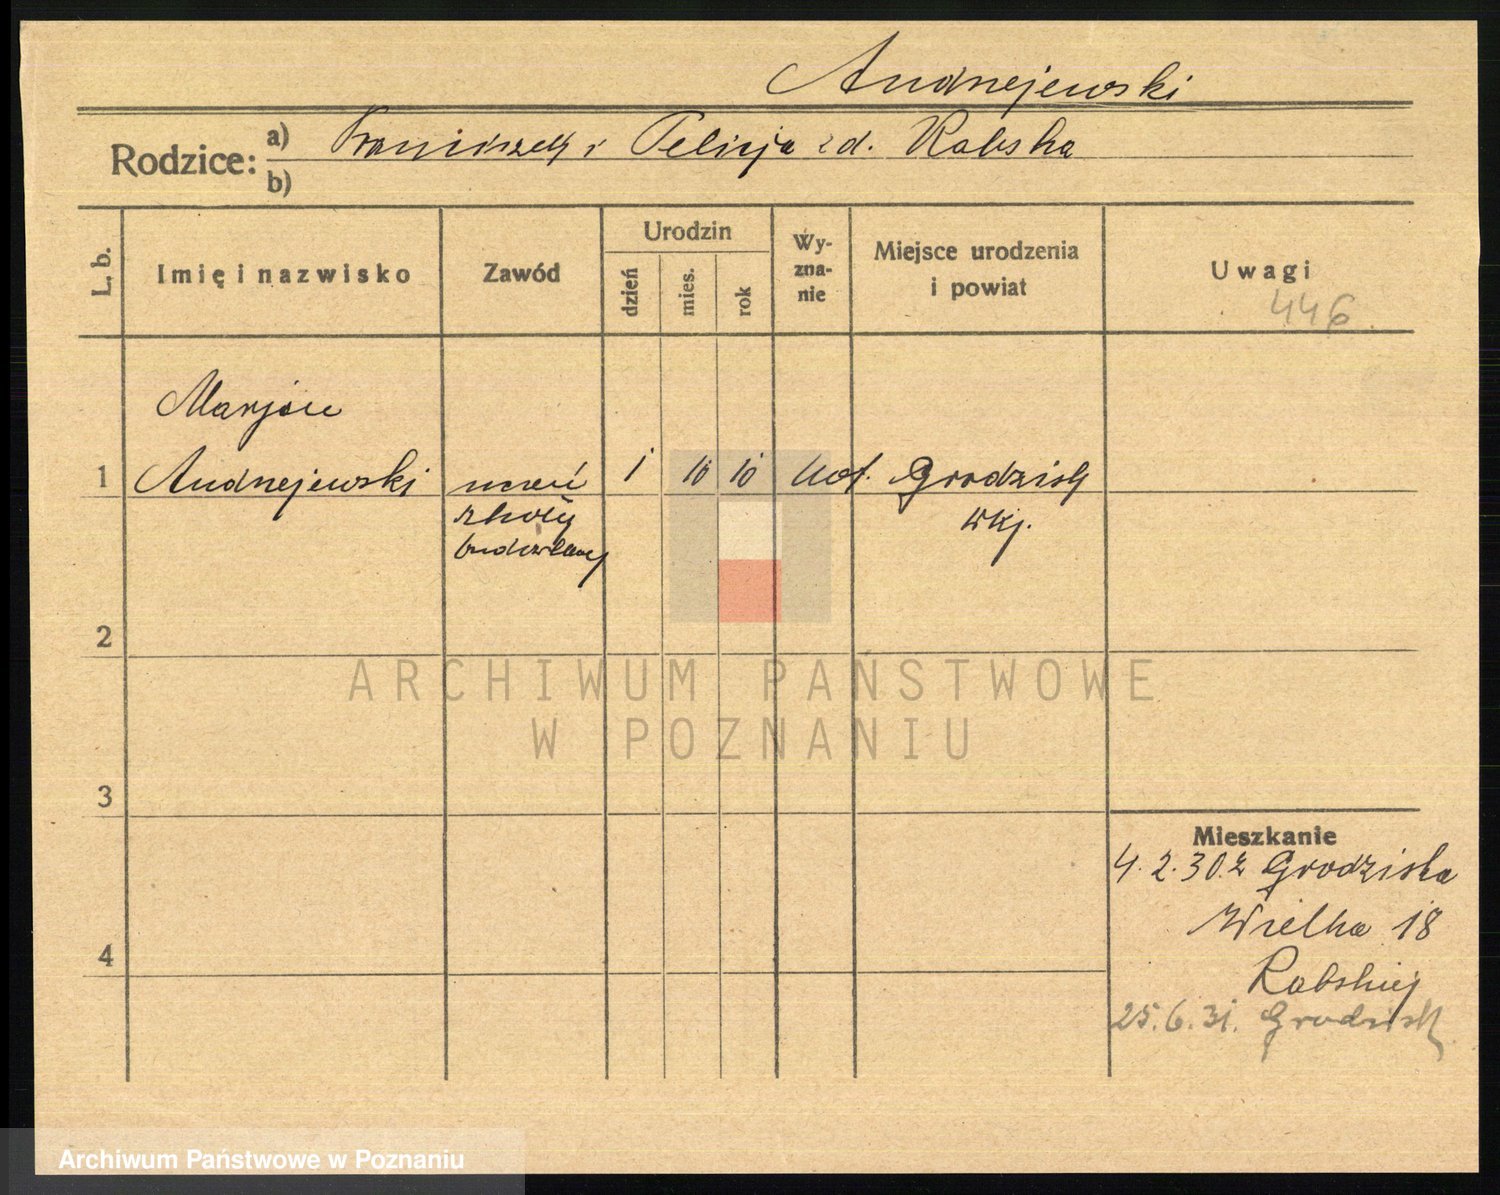 Andrzejewski
Rodzice: a) Franciszek i Felicja zd. Rabska
b)
L. b.
Imię i nazwisko
Zawód
Urodzin
dzień
mies.
rok
Wy-
zna-
nie
Miejsce urodzenia
i powiat
Uwagi
446
Marjan
1 Andrzejewski uczeń 1 10 10 kat. Grodzisk
szkoły wlkp.
budowlanej
2
3
4
ARCHIWUM PAŃSTWOWE
W POZNANIU
Mieszkanie
4.2.30. z Grodziska
Wielka 18
Rabskiej
25.6.31. Grodzisk
Archiwum Państwowe w Poznaniu